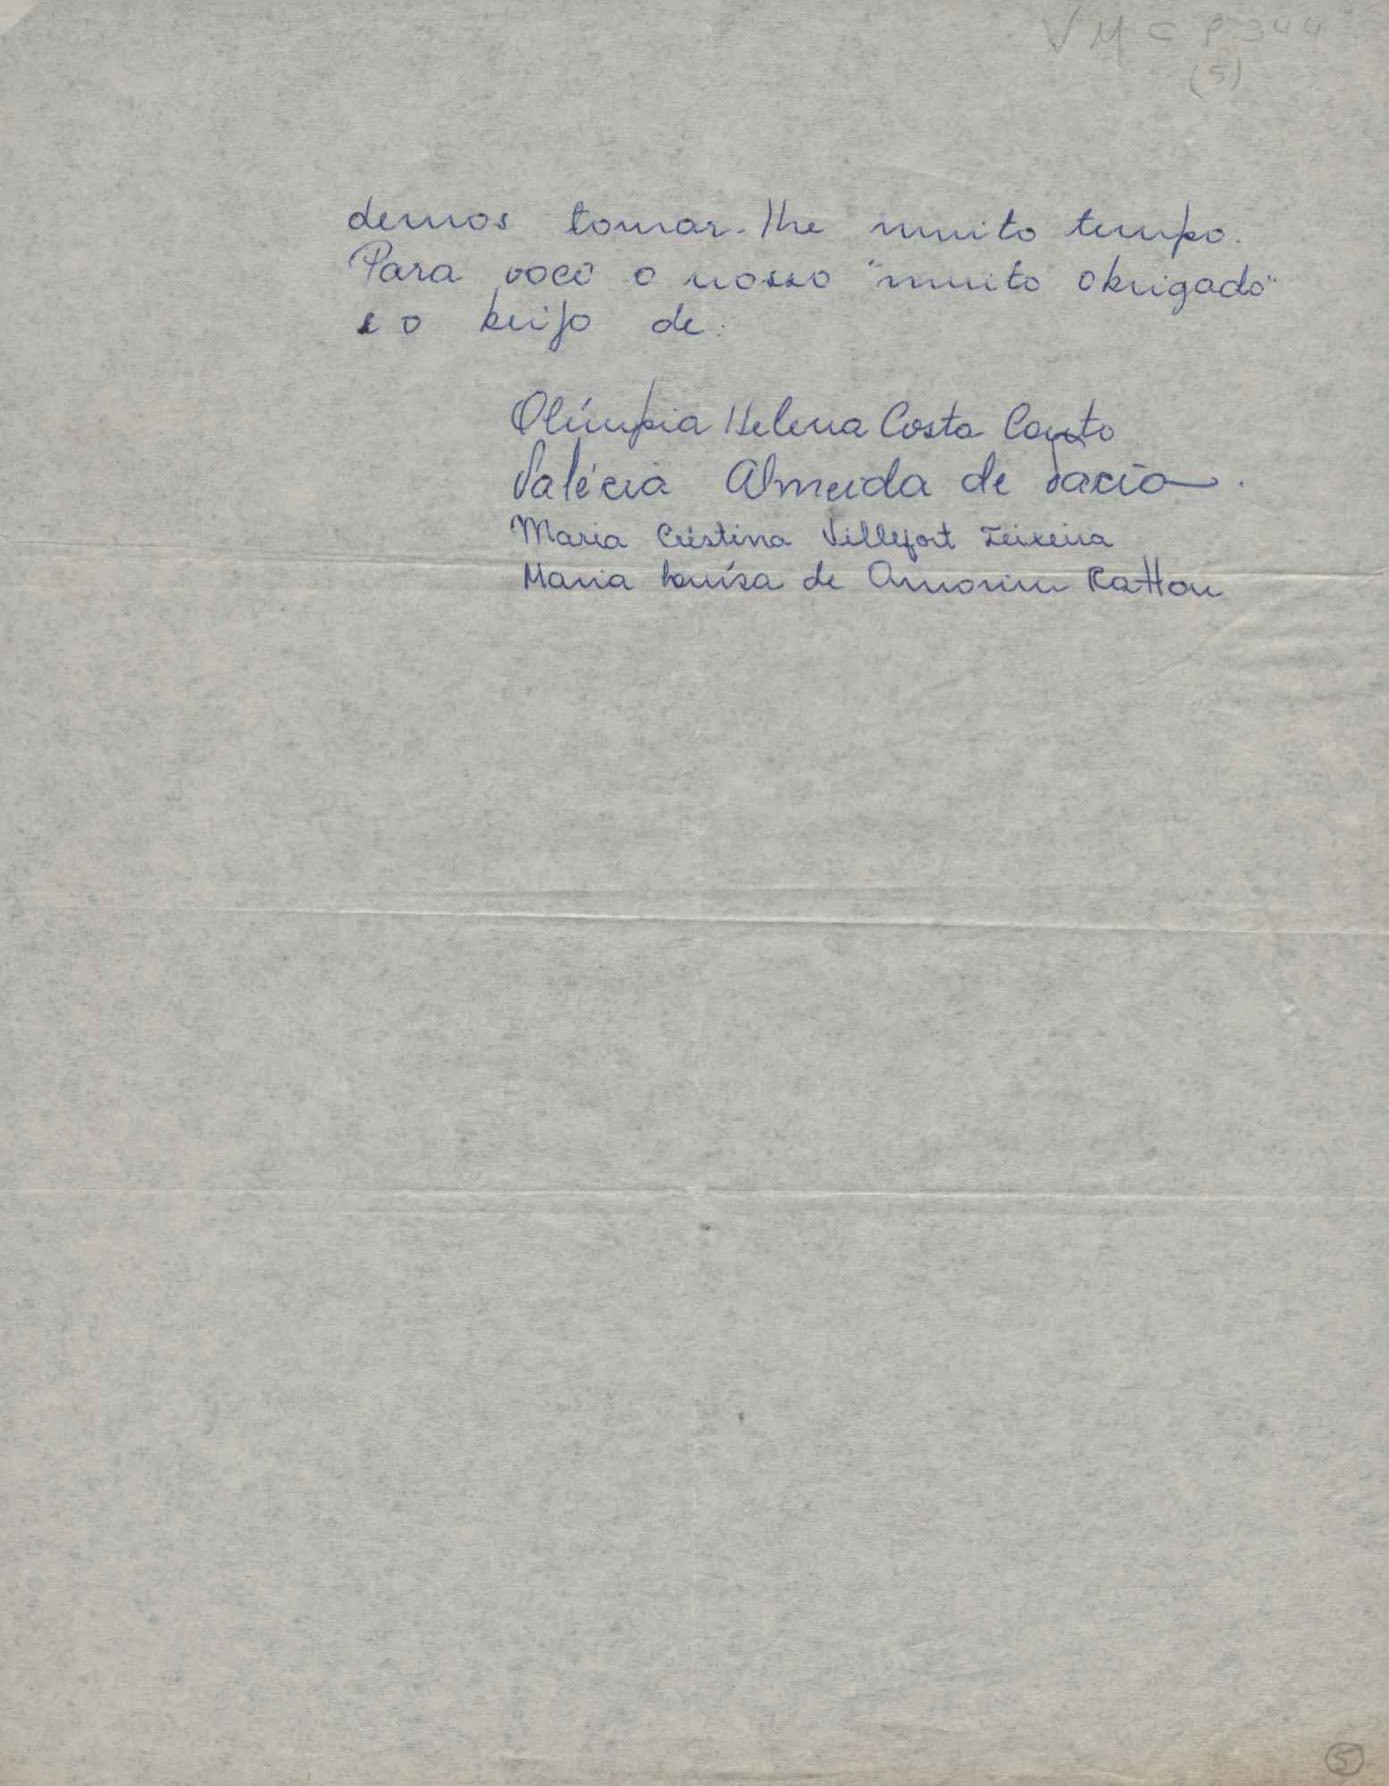 VMCP344
(5)
demos tomar-lhe muito tempo.
Para você o nosso "muito obrigado"
e o beijo de:
Olímpia Helena Costa Couto
Valéria Almeida de
Maria Cristina Villefort Teixeira
Maria Louísa de Amorim Ratton
5